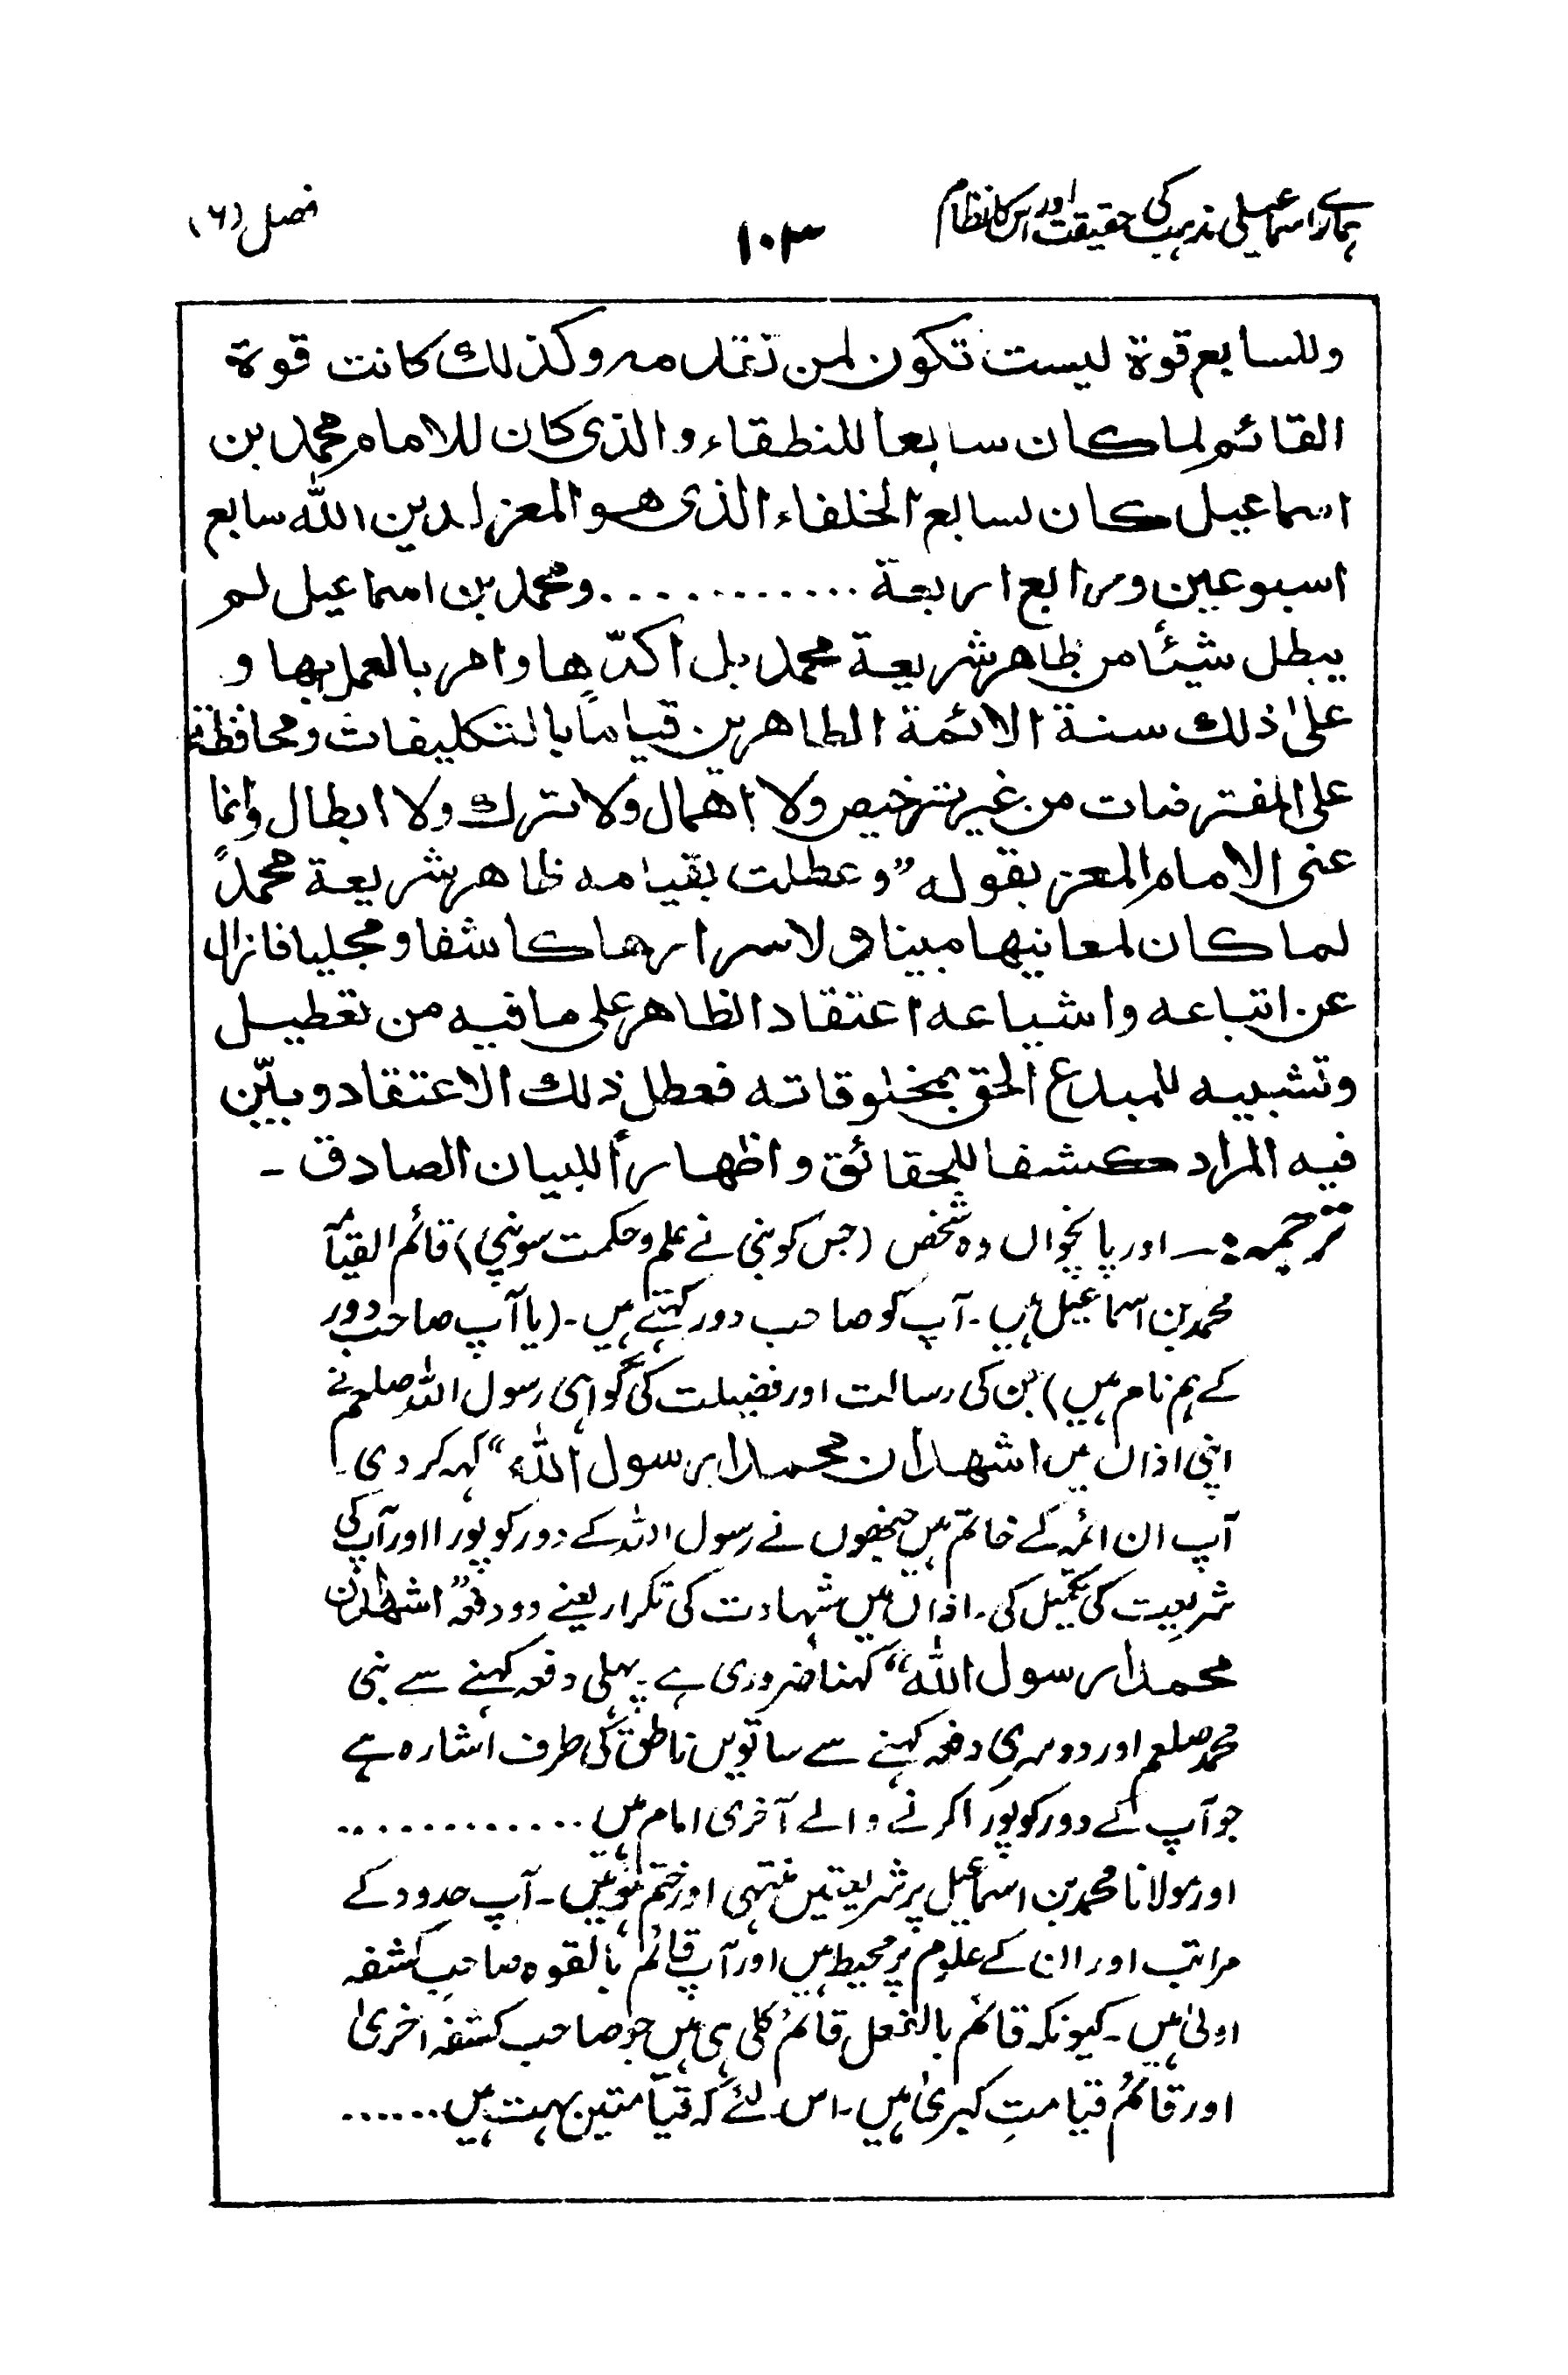 ہمارے اسماعیلی مذہب کی حقیقت اور اس کا نظام
۱۰۳
فصل (۶)
وللسابع قوة ليست تكون لمن تقدمه وكذلك كانت قوة
القائم لما كان سابعا للنطقاء والذى كان للامام محمد بن
اسماعيل كان لسابع الخلفاء الذى هو المعز لدين الله سابع
اسبوعين ورابع اربعة ............ ومحمد بن اسماعيل لم
يبطل شيئا من ظاهر شريعة محمد بل اكدّها وامر بالعمل بها و
على ذلك سنة الائمة الطاهرين قياماً بالتكليفات ومحافظة
على المفترضات من غير ترخيص ولا اهمال ولا ترك ولا ابطال وانما
عنى الامام المعز بقوله ”وعطلت بقيامه ظاهر شريعة محمدؐ
لما كان لمعانيها مبينا ولاسرارها كاشفا ومجليا فازال
عن اتباعه واشياعه اعتقاد الظاهر على ما فيه من تعطيل
وتشبيه للمبدع الحق بمخلوقاته فعطل ذلك الاعتقاد وبيّن
فيه المراد كشفا للحقائق واظهاراً للبيان الصادق ۔
ترجمہ :۔ اور پانچواں وہ شخص (جس کو نبی نے علم و حکمت سونپی) قائم القیامۃ
محمد بن اسماعیل ہیں ۔ آپ کو صاحب دور کہتے ہیں ۔ (یا آپ صاحب دور
کے ہم نام ہیں) جن کی رسالت اور فضیلت کی گواہی رسول اللہ صلعم نے
اپنی اذان میں اشهد ان محمدا رسول الله“ کہہ کر دی ۔
آپ ان ائمہ کے خاتم ہیں جنھوں نے رسول اللہ کے دور کو پورا اور آپ کی
شریعت کی تکمیل کی ۔ اذان میں شہادت کی تکرار یعنے دو دفعہ ”اشهد ان
محمدا رسول الله“ کہنا ضروری ہے ۔ پہلی دفعہ کہنے سے نبی
محمد صلعم اور دوسری دفعہ کہنے سے ساتویں ناطق کی طرف اشارہ ہے
جو آپ کے دور کو پورا کرنے والے آخری امام ہیں .............
اور مولانا محمد بن اسماعیل پر شریعتیں منتہی اور ختم ہوئیں ۔ آپ حدود کے
مراتب اور ان کے علوم پر محیط ہیں اور آپ قائم بالقوہ صاحبِ کشفہ
اولیٰ ہیں ۔ کیونکہ قائم بالفعل قائم کلی ہی ہیں جو صاحب کشفہ اخریٰ
اور قائم قیامتِ کبریٰ ہیں ۔ اس لئے کہ قیامتیں بہت ہیں ......